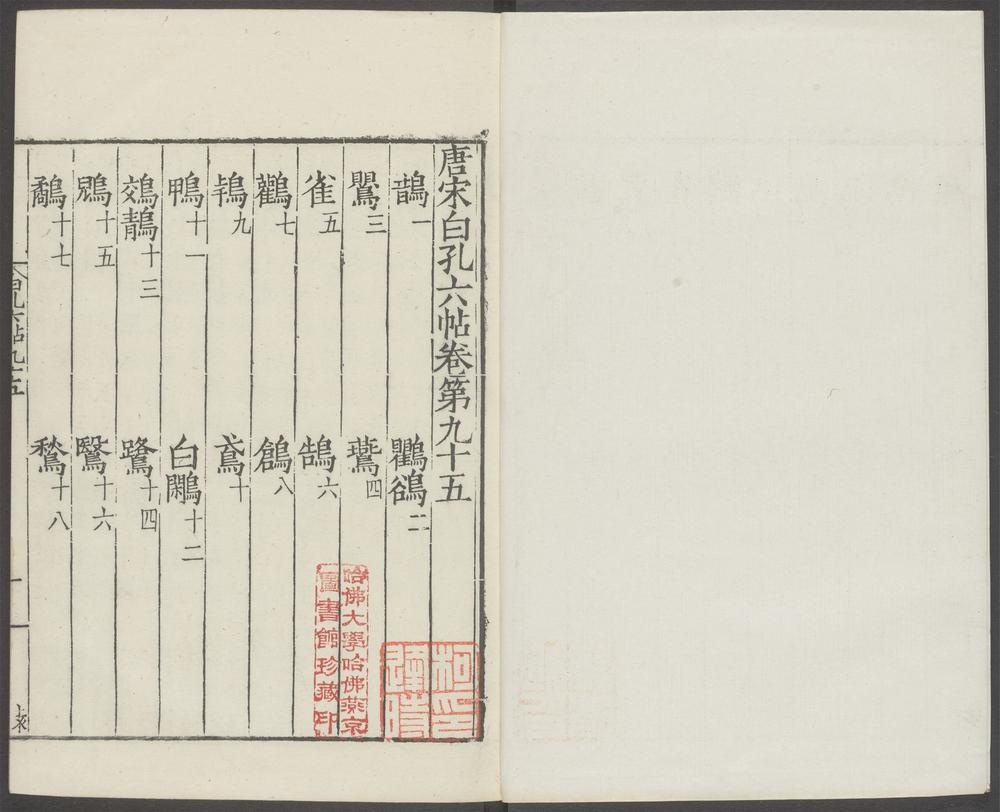 唐宋白孔六帖卷第九十五
鵲一 鸜鵒二
鸎三 鷰四
雀五 鵠六
鸛七 鶬八
鴇九 鳶十
鴨十一 白鷴十二
鵁鶄十三 鷺十四
十五 鷖十六
鷸十七 鶖十八
白孔六帖九十五
一
哈佛大學哈佛燕京
圖書館珍藏印
柯印
逢時